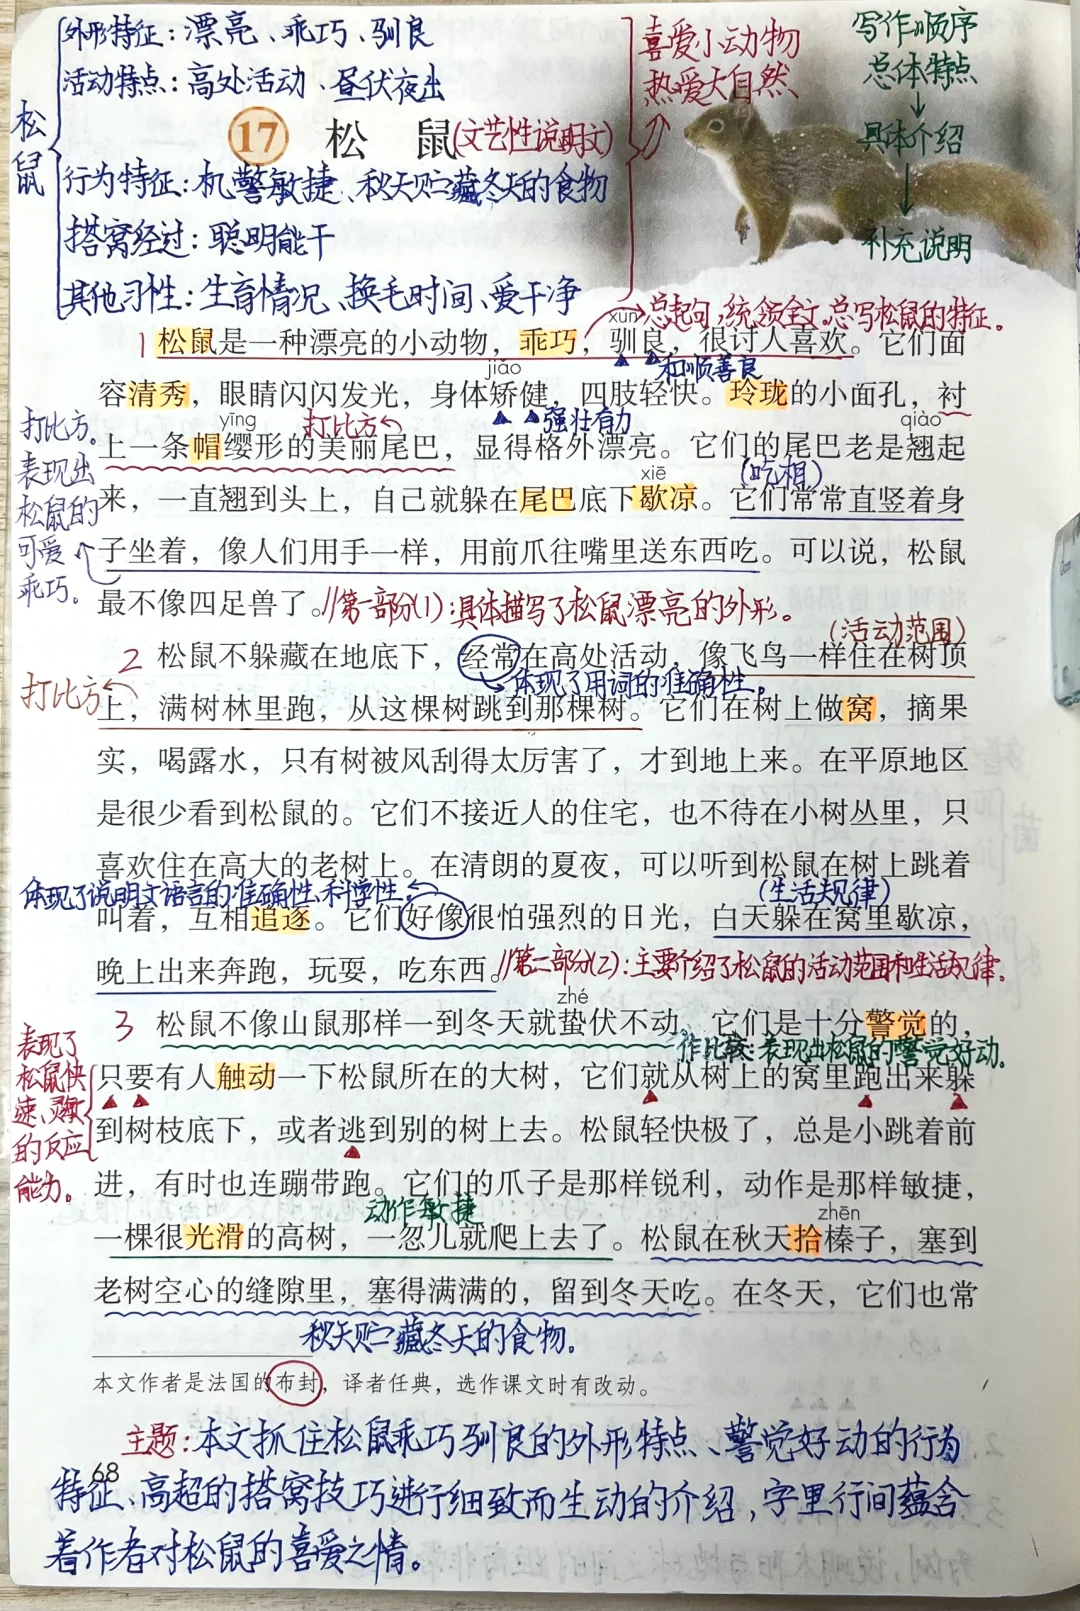 外形特征：漂亮、乖巧、驯良
活动特点：高处活动、昼伏夜出
松鼠
17 松鼠(文艺性说明文)
行为特征：机警敏捷、秋天贮藏冬天的食物
搭窝经过：聪明能干
其他习性：生育情况、换毛时间、爱干净
喜爱小动物
热爱大自然
写作顺序
总体特点
↓
具体介绍
↓
补充说明
xùn
总起句，统领全文。总写松鼠的特征。
1 松鼠是一种漂亮的小动物，乖巧，驯良，很讨人喜欢。它们面
jiǎo
和顺善良
容清秀，眼睛闪闪发光，身体矫健，四肢轻快。玲珑的小面孔，衬
yīng
打比方
强壮有力
qiào
上一条帽缨形的美丽尾巴，显得格外漂亮。它们的尾巴老是翘起
xiē
(吃相)
来，一直翘到头上，自己就躲在尾巴底下歇凉。它们常常直竖着身
子坐着，像人们用手一样，用前爪往嘴里送东西吃。可以说，松鼠
打比方。
表现出
松鼠的
可爱
乖巧。
最不像四足兽了。//第一部分(1)：具体描写了松鼠漂亮的外形。
(活动范围)
2 松鼠不躲藏在地底下，经常在高处活动，像飞鸟一样住在树顶
体现了用词的准确性。
打比方
上，满树林里跑，从这棵树跳到那棵树。它们在树上做窝，摘果
实，喝露水，只有树被风刮得太厉害了，才到地上来。在平原地区
是很少看到松鼠的。它们不接近人的住宅，也不待在小树丛里，只
喜欢住在高大的老树上。在清朗的夏夜，可以听到松鼠在树上跳着
体现了说明文语言的准确性、科学性。
(生活规律)
叫着，互相追逐。它们好像很怕强烈的日光，白天躲在窝里歇凉，
晚上出来奔跑，玩耍，吃东西。//第二部分(2)：主要介绍了松鼠的活动范围和生活规律。
zhé
3 松鼠不像山鼠那样一到冬天就蛰伏不动。它们是十分警觉的，
作比较：表现出松鼠的警觉好动。
只要有人触动一下松鼠所在的大树，它们就从树上的窝里跑出来躲
到树枝底下，或者逃到别的树上去。松鼠轻快极了，总是小跳着前
表现了
松鼠快
速、灵敏
的反应
能力。
进，有时也连蹦带跑。它们的爪子是那样锐利，动作是那样敏捷，
动作敏捷
zhēn
一棵很光滑的高树，一忽儿就爬上去了。松鼠在秋天拾榛子，塞到
老树空心的缝隙里，塞得满满的，留到冬天吃。在冬天，它们也常
秋天贮藏冬天的食物。
本文作者是法国的布封，译者任典，选作课文时有改动。
主题：本文抓住松鼠乖巧驯良的外形特点、警觉好动的行为
68
特征、高超的搭窝技巧进行细致而生动的介绍，字里行间蕴含
着作者对松鼠的喜爱之情。